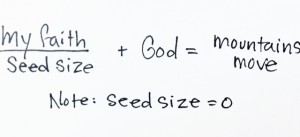 My faith
Seed size + God = mountains move
Note: Seed size = 0